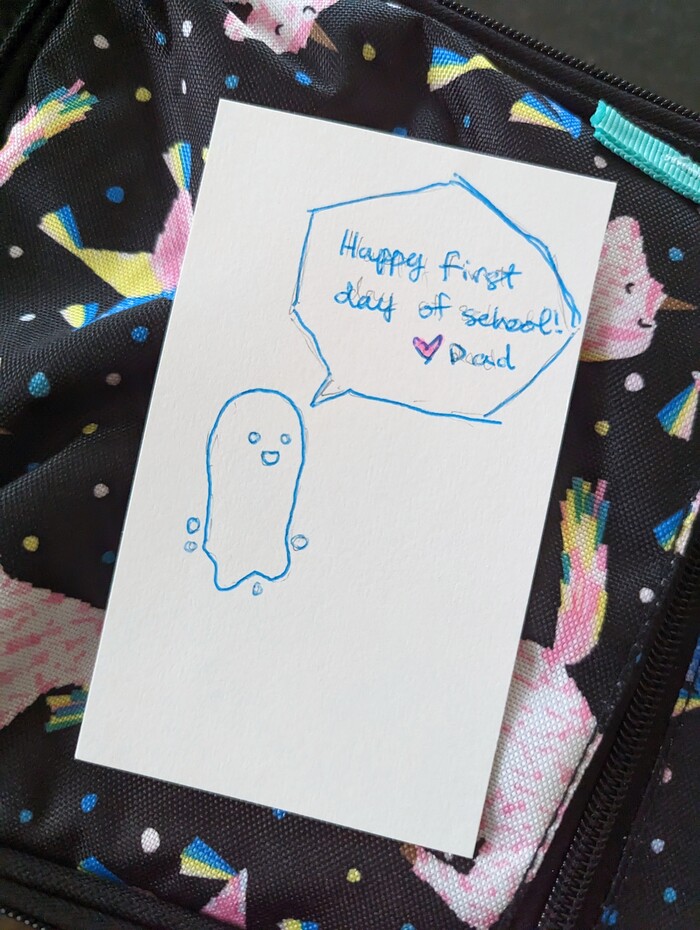 Happy first
day of school!
♥ Dad